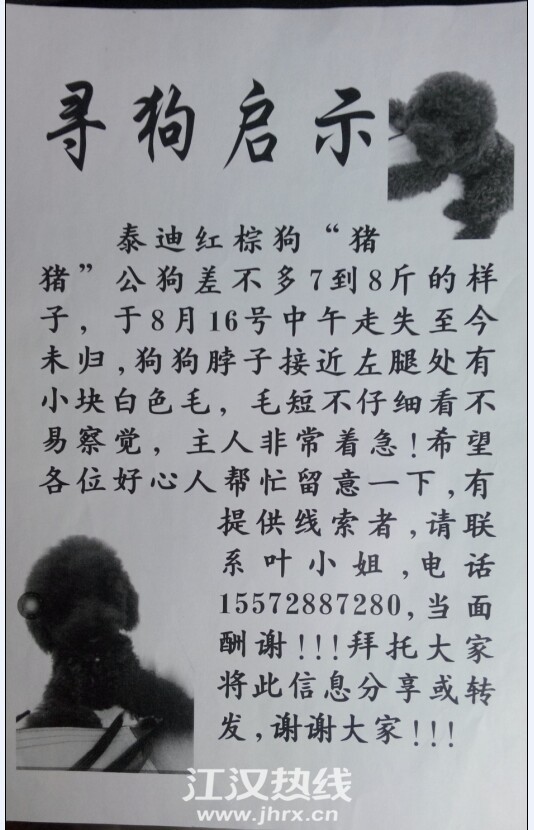 寻狗启示
泰迪红棕狗“猪
猪”公狗差不多7到8斤的样
子，于8月16号中午走失至今
未归,狗狗脖子接近左腿处有
小块白色毛，毛短不仔细看不
易察觉，主人非常着急!希望
各位好心人帮忙留意一下,有
提供线索者,请联
系叶小姐,电话
15572887280,当面
酬谢!!!拜托大家
将此信息分享或转
发,谢谢大家!!!
江汉热线
www.jhrx.cn